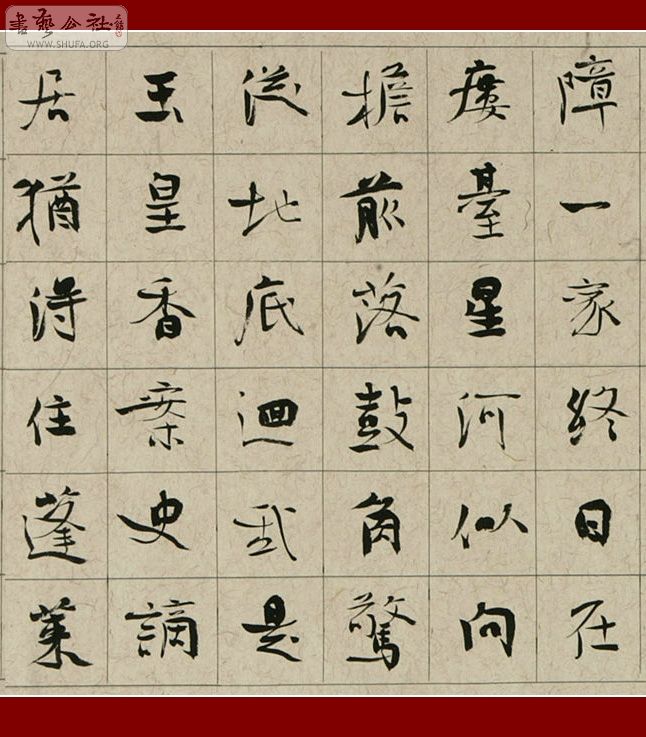 書藝公社
WWW.SHUFA.ORG
障一家終日在
廔臺星河似向
檐前落鼓角驚
從地底迴我是
玉皇香案史謫
居猶得住蓬萊